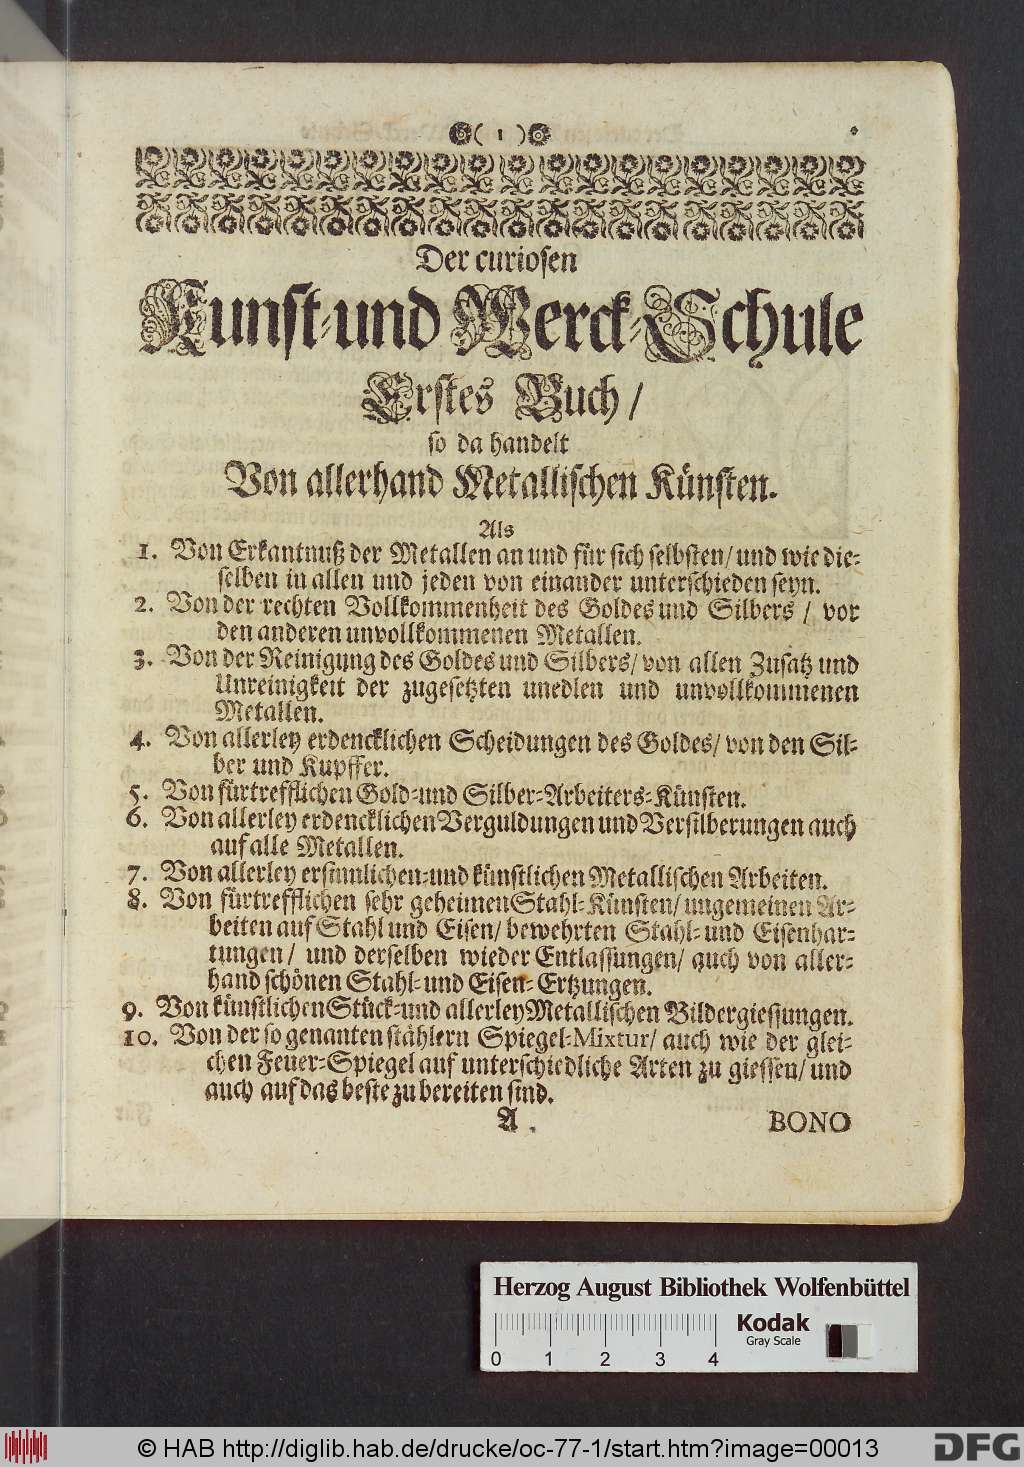 ( 1 )
Der curiosen
Kunst-und Werck-Schule
Erstes Buch /
so da handelt
Von allerhand Metallischen Künsten.
Als
1. Von Erkantnuß der Metallen an und für sich selbsten/ und wie die-
selben in allen und jeden von einander unterschieden seyn.
2. Von der rechten Vollkommenheit des Goldes und Silbers / vor
den anderen unvollkommenen Metallen.
3. Von der Reinigung des Goldes und Silbers/ von allen Zusatz und
Unreinigkeit der zugesetzten unedlen und unvollkommenen
Metallen.
4. Von allerley erdencklichen Scheidungen des Goldes/ von den Sil-
ber und Kupffer.
5. Von fürtrefflichen Gold-und Silber-Arbeiters-Künsten.
6. Von allerley erdencklichen Verguldungen und Versilberungen auch
auf alle Metallen.
7. Von allerley ersinnlichen-und künstlichen Metallischen Arbeiten.
8. Von fürtrefflichen sehr geheimen Stahl-Künsten/ ungemeinen Ar-
beiten auf Stahl und Eisen/ bewehrten Stahl- und Eisenhar-
tungen/ und derselben wieder Entlassungen/ auch von aller-
hand schönen Stahl- und Eisen- Ertzungen.
9. Von künstlichen Stück-und allerley Metallischen Bildergiessungen.
10. Von der so genanten stählern Spiegel-Mixtur/ auch wie der glei-
chen Feuer-Spiegel auf unterschiedliche Arten zu giessen/ und
auch auf das beste zu bereiten sind.
A
BONO
Herzog August Bibliothek Wolfenbüttel
Kodak
Gray Scale
0 1 2 3 4
© HAB http://diglib.hab.de/drucke/oc-77-1/start.htm?image=00013
DFG